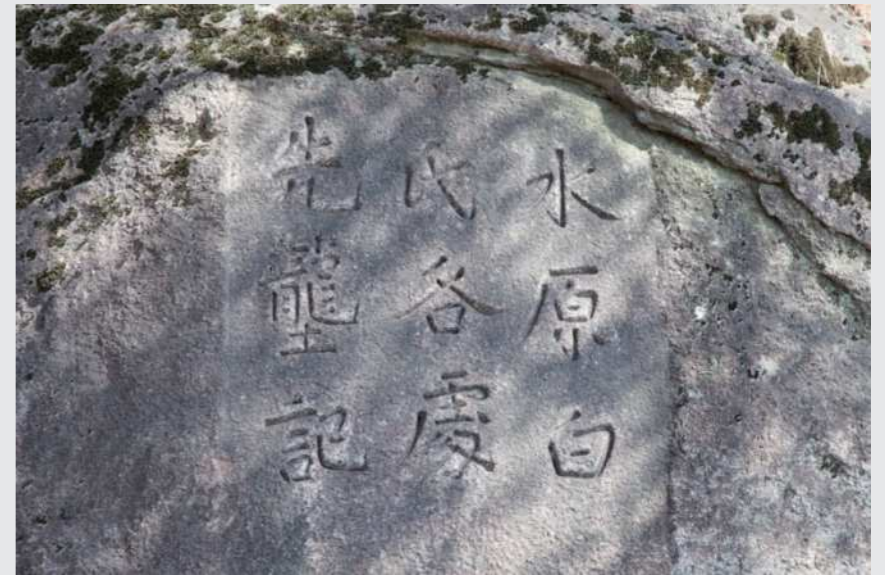 水原白
氏各處
先壟記